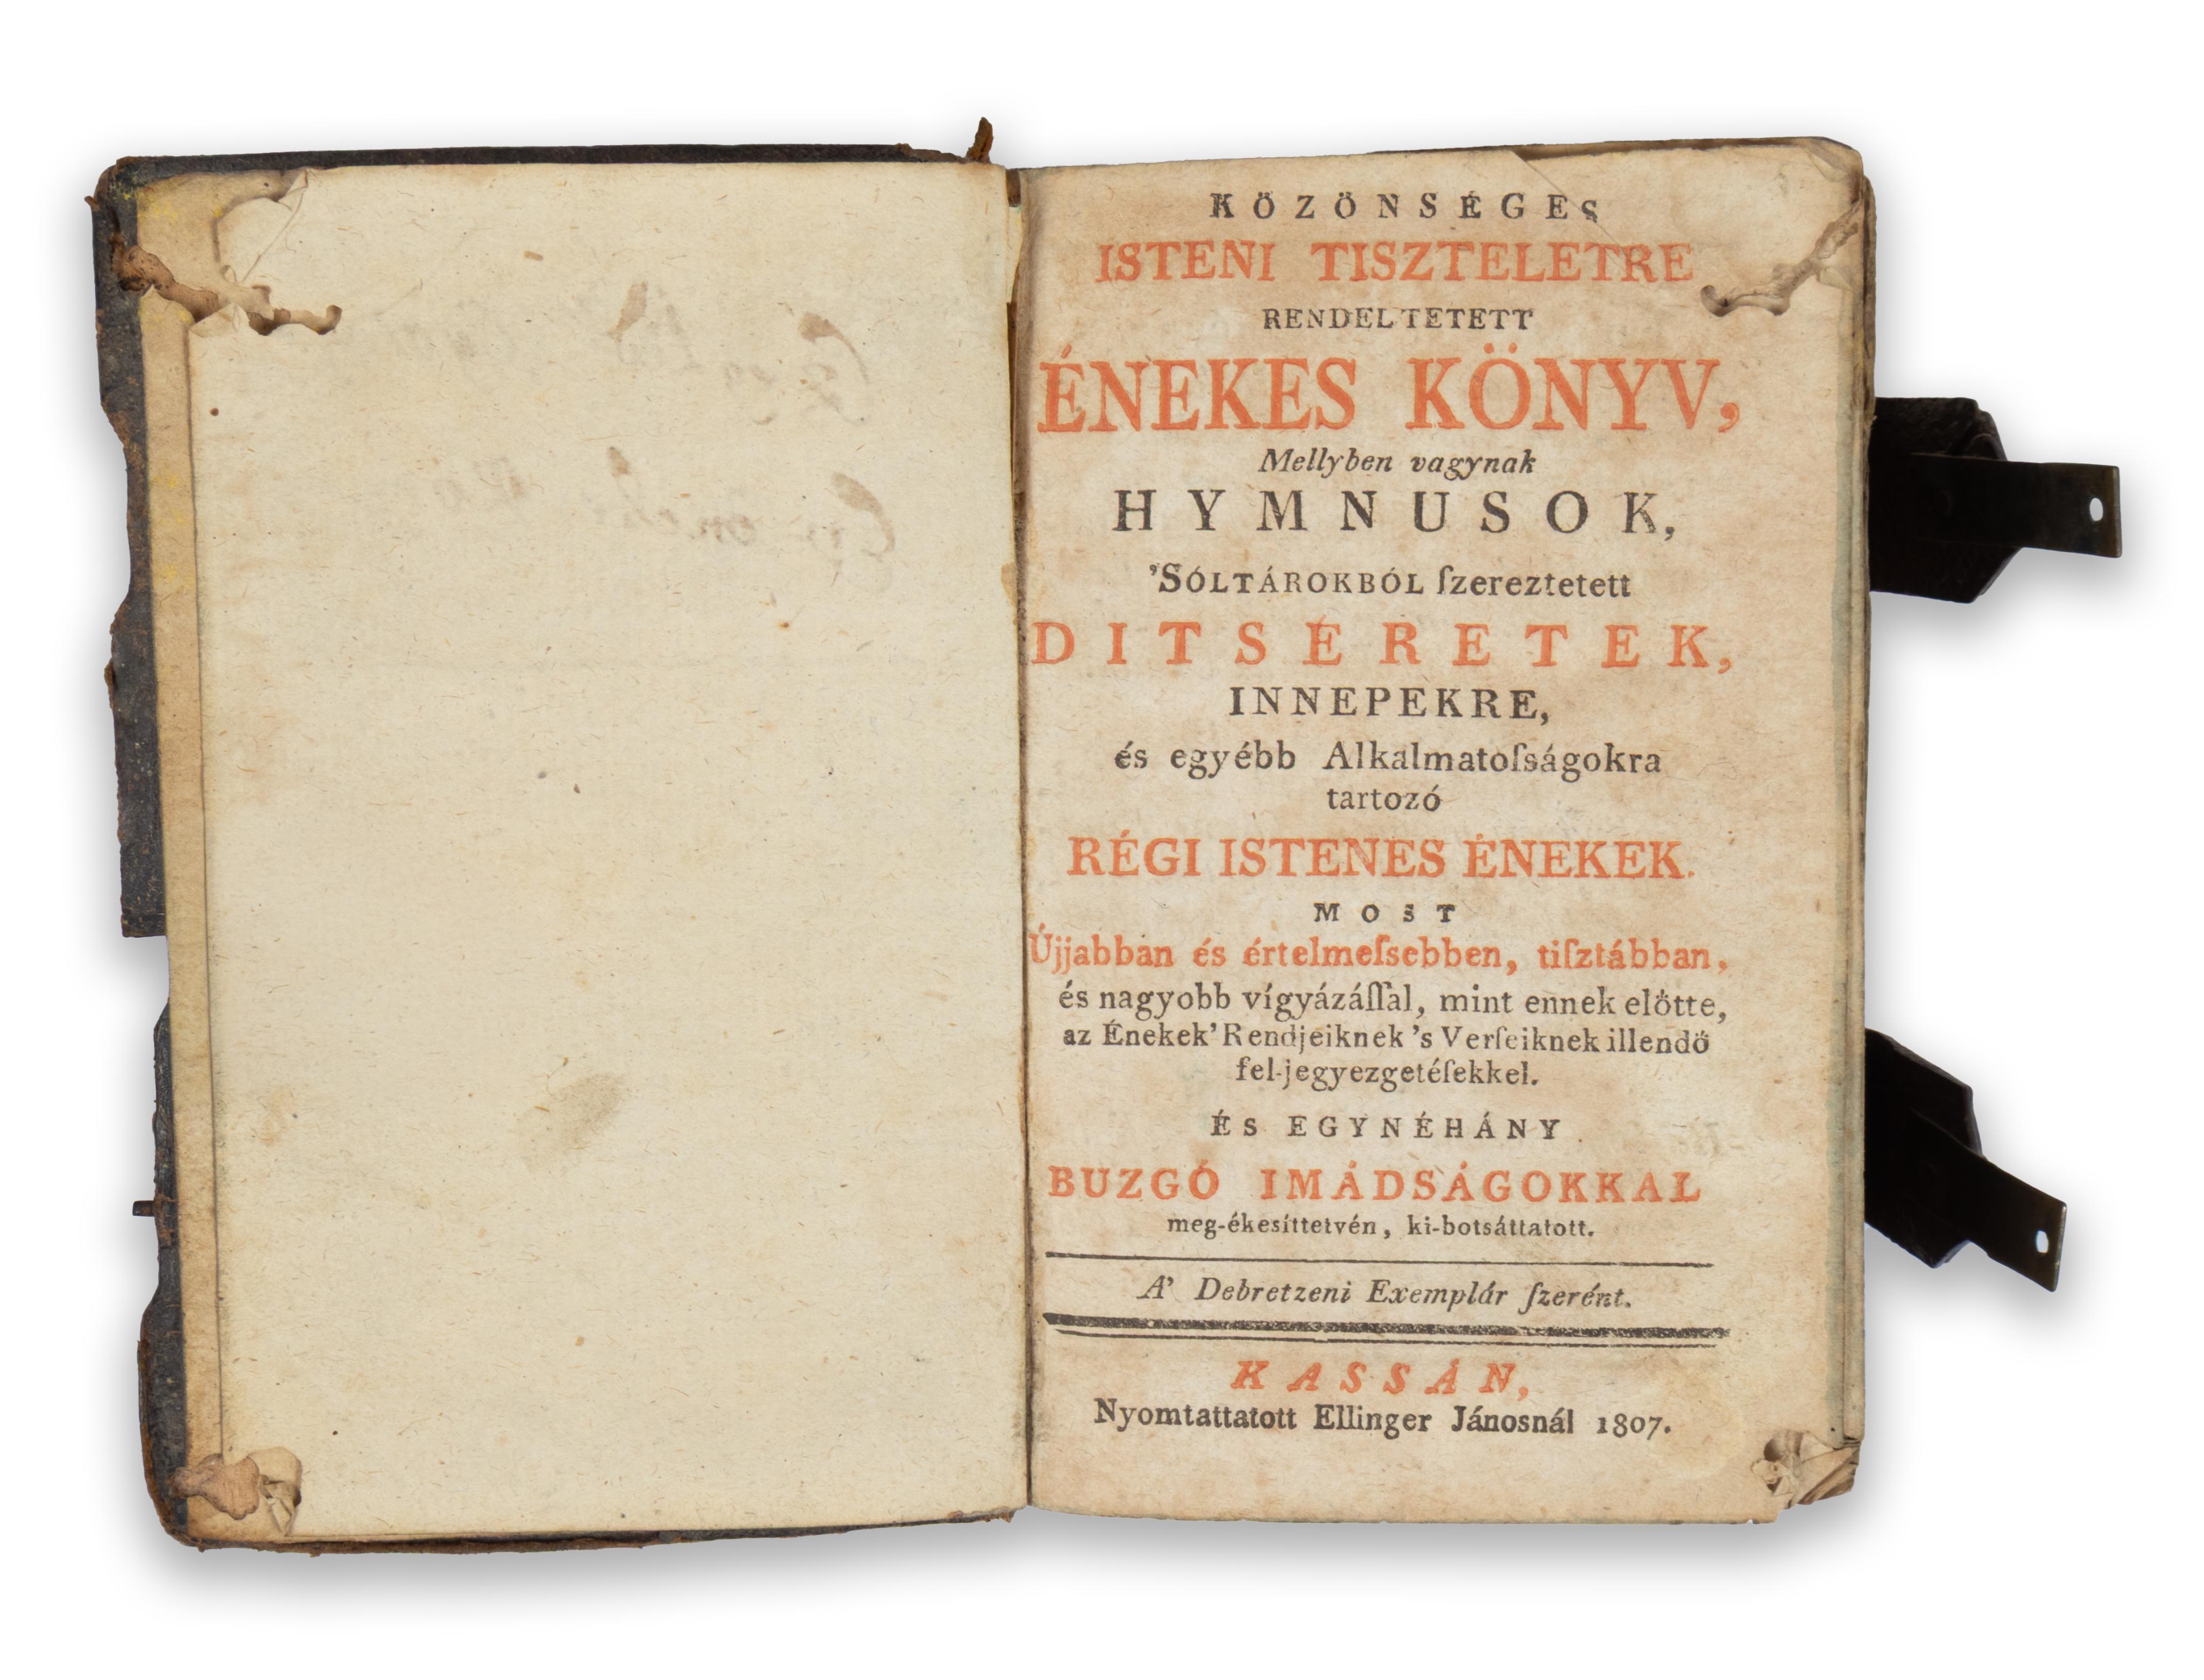 KÖZÖNSÉGES
ISTENI TISZTELETRE
RENDELTETETT
ÉNEKES KÖNYV,
Mellyben vagynak
HYMNUSOK,
'SÓLTÁROKBÓL ſzereztetett
DITSÉRETEK,
INNEPEKRE,
és egyébb Alkalmatoſságokra
tartozó
RÉGI ISTENES ÉNEKEK.
MOST
Újjabban és értelmeſsebben, tiſztábban,
és nagyobb vígyázáſſal, mint ennek előtte,
az Énekek' Rendjeiknek 's Verſeiknek illendő
fel-jegyezgetéſekkel.
ÉS EGYNÉHÁNY
BUZGÓ IMÁDSÁGOKKAL
meg-ékesíttetvén, ki-botsáttatott.
A' Debretzeni Exemplár ſzerént.
KASSÁN,
Nyomtattatott Ellinger Jánosnál 1807.